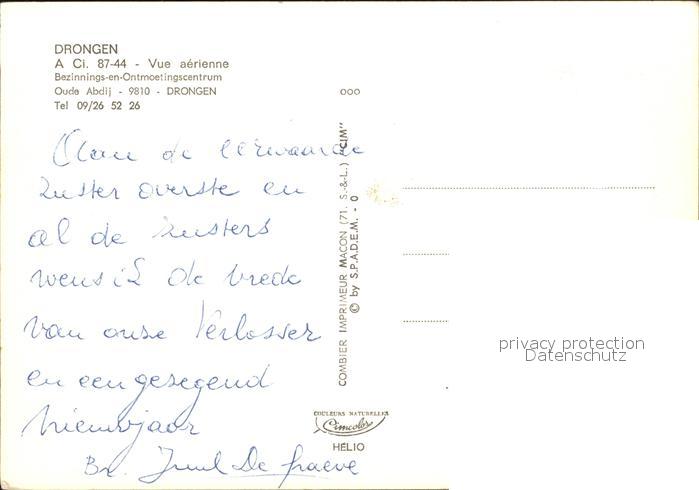 DRONGEN
A Ci. 87-44 - Vue aérienne
Bezinnings-en-Ontmoetingscentrum
Oude Abdij - 9810 - DRONGEN
Tel 09/26 52 26
Aan de eerwaarde
Zuster overste en
al de zusters
wens ik de vrede
van onze Verlosser
en een gezegend
nieuwjaar
Br. De graeve
000
COMBIER IMPRIMEUR MACON (71. S.-&-L.) "CIM"
© by S.P.A.D.E.M. - 0
COULEURS NATURELLES
Cimcolor
HÉLIO
privacy protection
Datenschutz